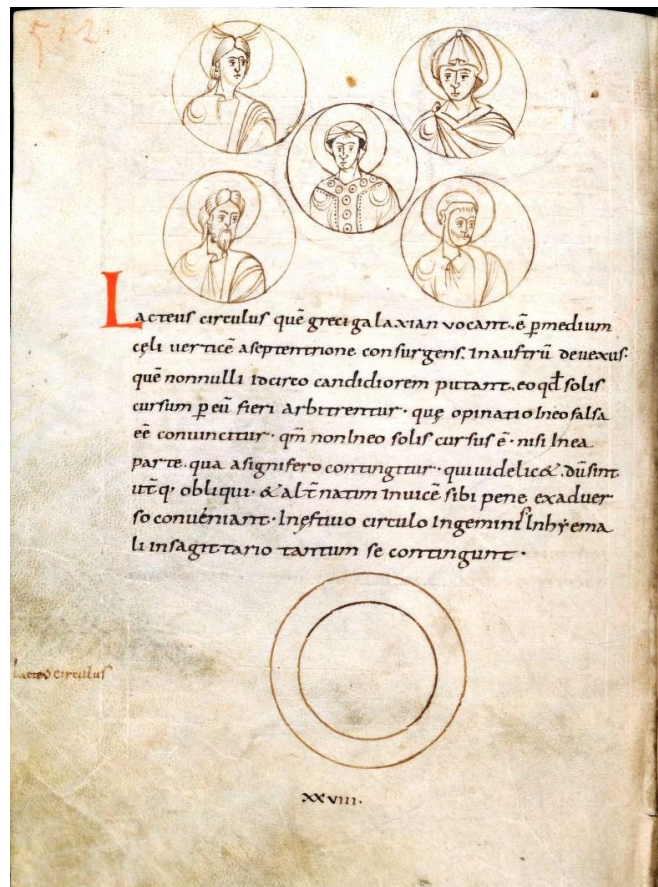 512.
Lacteus circulus quē greci galaxian vocant. ē p̄ medium
cęli uerticē a septentrione consurgens. In austrū deuexus.
quē nonnulli idcirco candidiorem putant. eo qđ solis
cursum p̄ eū fieri arbitrentur. quę opinatio Ineo falsa
eē conuincitur. qm̄ non Ineo solis cursus ē. nisi Inea
parte. qua a signifero contingitur. qui uidelic&. dū sint
ut̄q. obliqui. & alt̄natim inuicē sibi pene. ex aduer
so conueniant. In ęstiuo circulo In geminis In hyema
li in sagittario tantum se contingunt.
Lacteus circulus
XXVIII.